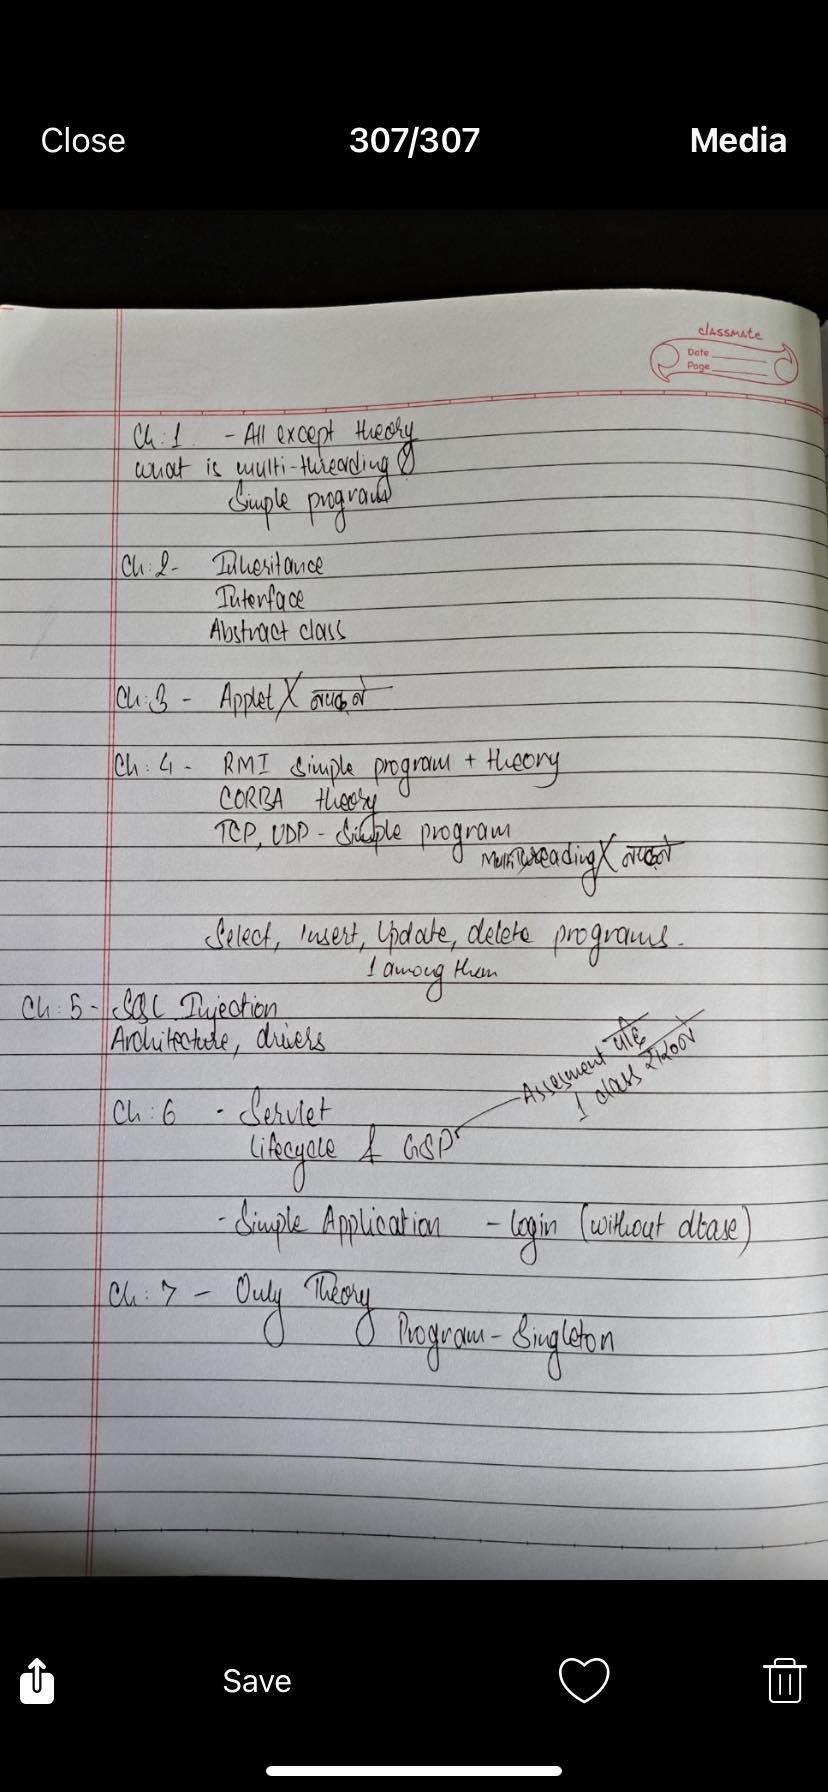 Close
307/307
Media
classmate
Date
Page
Ch: 1 - All except theory
what is multi-threading &
Simple program
Ch: 2- Inheritance
Interface
Abstract class
Ch: 3 - Applet X नपढ्ने
Ch: 4 - RMI simple program + theory
CORBA theory
TCP, UDP - Simple program
Multithreading X नपढ्ने
Select, Insert, Update, delete programs.
1 among them
Ch: 5 - SQL Injection
Architecture, drivers
Assesment
1 class
Ch: 6 - Servlet
lifecycle & GSP
- Simple Application - login (without dbase)
Ch: 7 - Only Theory
Program - Singleton
Save